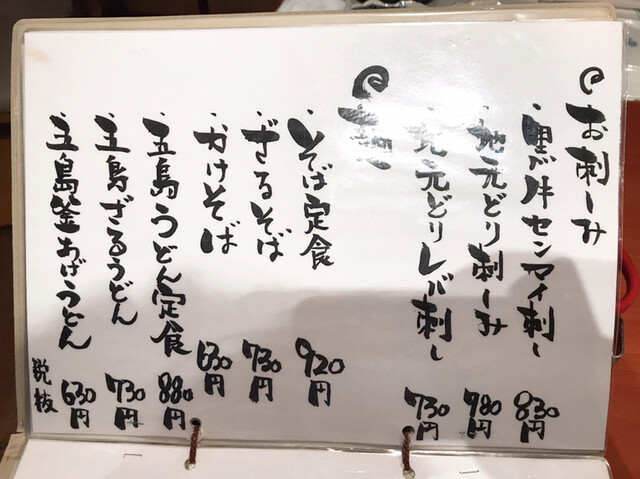 お刺しみ
・黒バ牛センマイ刺し 830円
・地元どり刺しみ 980円
・地元どりレバ刺し 730円
麺
・そば定食 920円
・ざるそば 730円
・かけそば 630円
・五島うどん定食 880円
・五島ざるうどん 730円
・五島釜あげうどん 630円
税抜